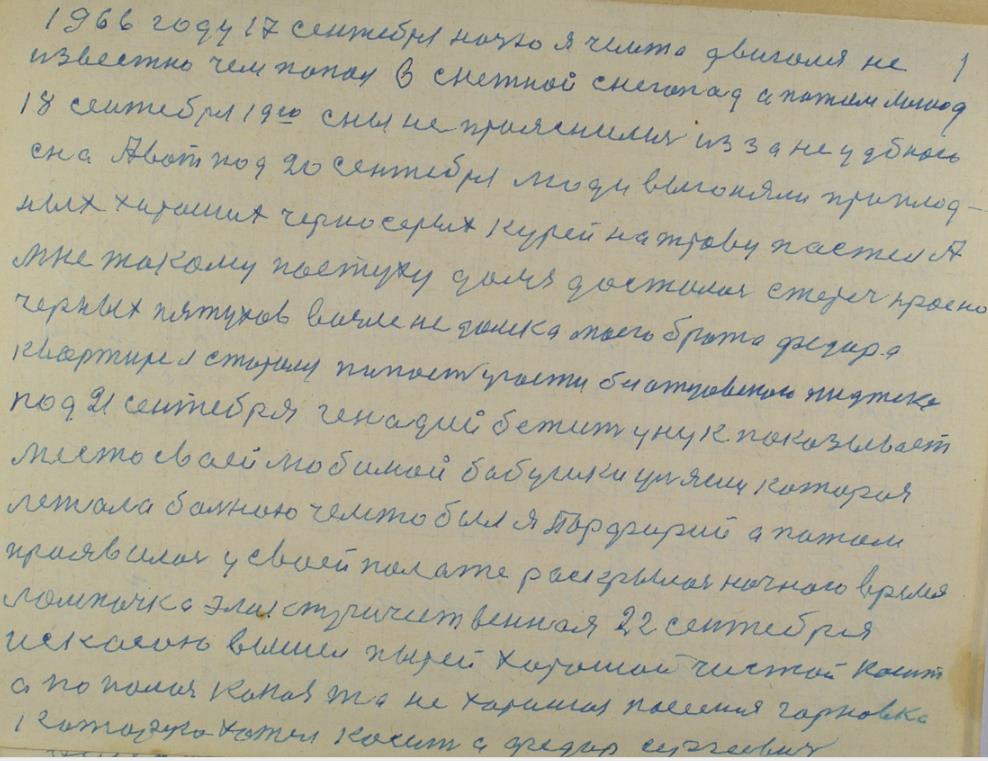 1966 году 17 сентебря ночю я чемто двигался не 1
известно чем попал в снежной снегопад а потом
18 сентебря 19го сны не прояснились из за неудбного
сна Авот под 20 сентебря люди выгоняли приплод-
ных хороших черносерых курей на трову пастел А
мне такому пастуху доля досталась стереч красно
черных пятухов возле не домека моего брата федора
квартире сторону
под 21 сентебря генадий бежит унук показывает
место своей любимой бабушки которая
лежала больною чемто был я Порфирий а потом
проявилась у своей полате раскрылась ночного время
лампочка 22 сентебря
искасою вышел пырей хорошой чистой косит
а попалась какаята не хорошая
которую хотел косит а федор сергеевич